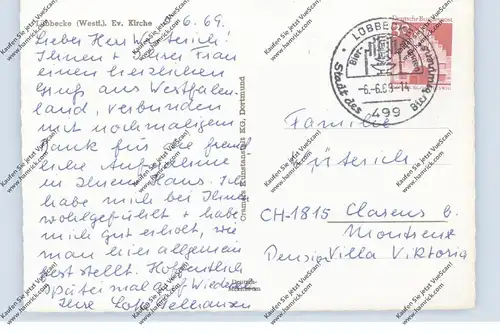 Lübbecke (Westf.), Ev. Kirche
6. 69
Lieber Herr
Ihnen + Ihrer Frau
einen herzlichen
Gruß aus Westfalen-
land, verbunden
mit nochmaligem
Dank für die freund-
liche Aufnahme
in Ihrem Haus. Ich
habe mich bei Ihnen
wohlgefühlt + habe
mich gut erholt, wie
man hier allgemein
feststellt. Hoffentlich
später mal auf Wieder
Ihre
Cramers Kunstanstalt KG, Dortmund
LÜBBECKE
Stadt des
-6.-6.69-14
499
Familie
CH-1815 Clarens b.
Montreux
Pension Villa Viktoria
Kaufen Sie jetzt VueScan!
www.hamrick.com